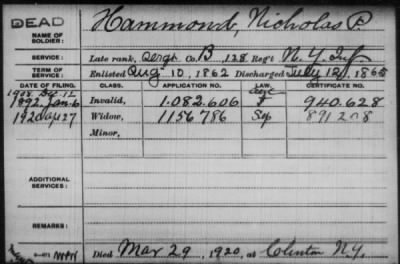 DEAD
NAME OF SOLDIER: Hammond, Nicholas P.
SERVICE: Late rank, Sergt Co. B, 128 Reg't N. Y. Inf
TERM OF SERVICE: Enlisted Aug. 10, 1862 Discharged July 12, 1865
DATE OF FILING. CLASS. APPLICATION NO. LAW. CERTIFICATE NO.
1908 Dec. 12 age
1892 Jan. 6 Invalid, 1.082.606 940.628
1920 Ap 27 Widow, 1156786 Sep 891208
Minor,
ADDITIONAL SERVICES:
REMARKS:
Died Mar 29, 1920, at Clinton N.Y.